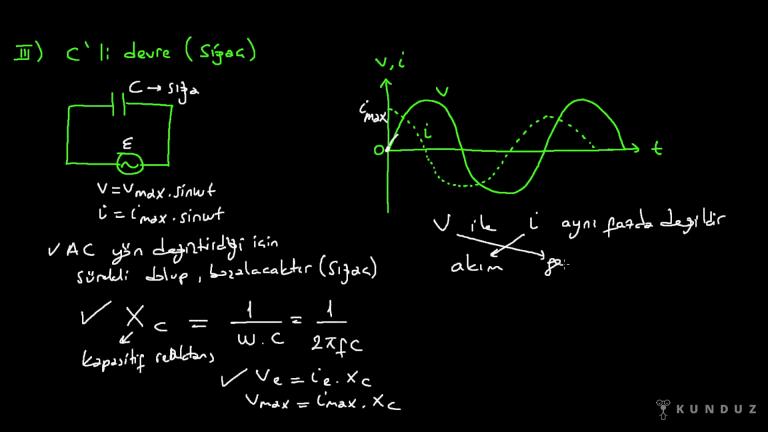 III) C'li devre (Sığaç)
C → sığa
ε
V = Vmax . sinwt
i = imax . sinwt
✓ AC yön değiştirdiği için
sürekli dolup, boşalacaktır (Sığaç)
✓ Xc = 1/w.C = 1/2πfC
kapasitif reaktans
✓ Ve = ie . Xc
Vmax = imax . Xc
V, i
imax
V
i
0
t
V ile i aynı fazda değildir
akım ge
KUNDUZ